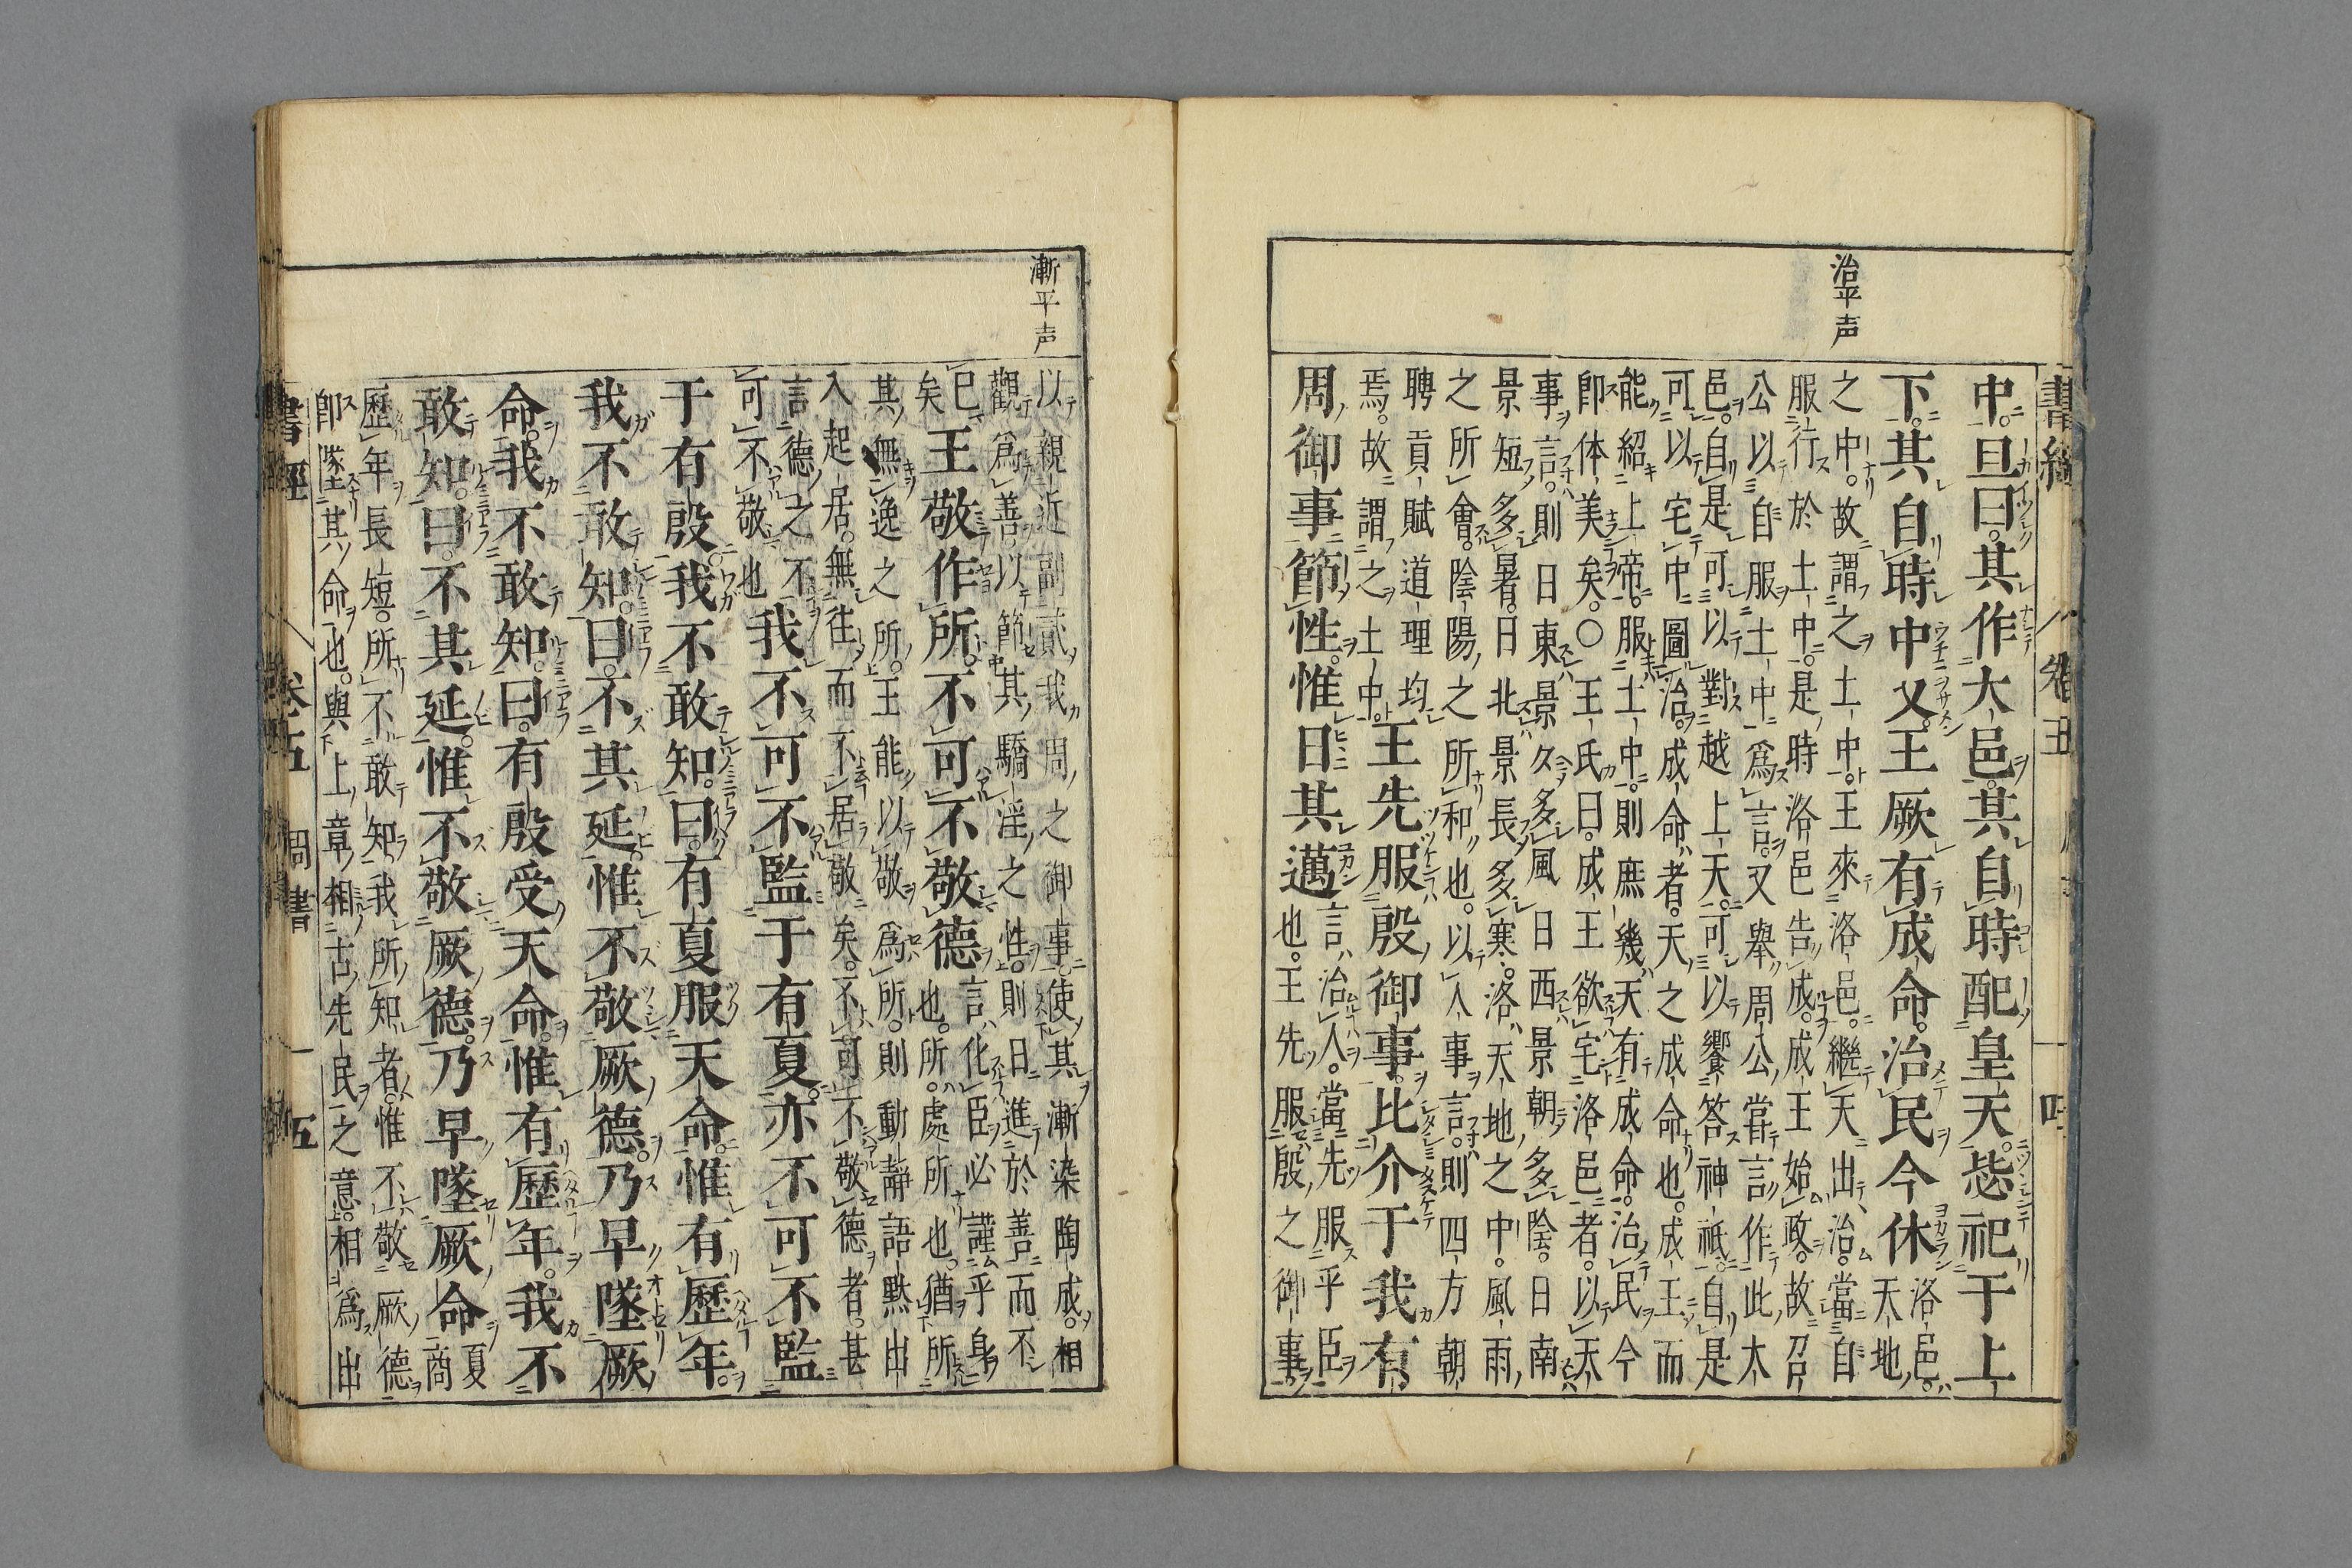 治平声
中旦曰其作大邑其自時配皇天毖祀于上
下其自時中乂王厥有成命治民今休洛邑天地
之中故謂之土中王來洛邑繼天出治當自
服行於土中是時洛邑告成成王始政故召
公以自服土中爲言又舉周公嘗言作此大
邑自是可以對越上天可以饗答神祇自是
可以宅中圖治成命者天之成命也成王而
能紹上帝服土中則庶幾天有成命治民今
即休美矣○王氏曰成王欲宅洛邑者以天
事言則日東景夕多風日西景朝多陰日南
景短多暑日北景長多寒洛天地之中風雨
之所會陰陽之所和也以人事言則四方朝
聘貢賦道理均
焉故謂之土中王先服殷御事比介于我有
周御事節性惟日其邁言治人當先服乎臣也王先服殷之御事
漸平声
以親近副貳我周之御事使其漸染陶成相
觀爲善以節其驕淫之性則日進於善而不
已矣王敬作所不可不敬德言化臣必謹乎身也所處所也猶所
其無逸之所王能以敬爲所則動靜語黙出
入起居無往而不居敬矣不可不敬德者甚
言德之不可不敬也我不可不監于有夏亦不可不監
于有殷我不敢知曰有夏服天命惟有歷年
我不敢知曰不其延惟不敬厥德乃早墜厥
命我不敢知曰有殷受天命惟有歷年我不
敢知曰不其延惟不敬厥德乃早墜厥命夏商
歷年長短所不敢知我所知者惟不敬厥德
即墜其命也與上章相古先民之意相爲出
書經 卷五 周書 五